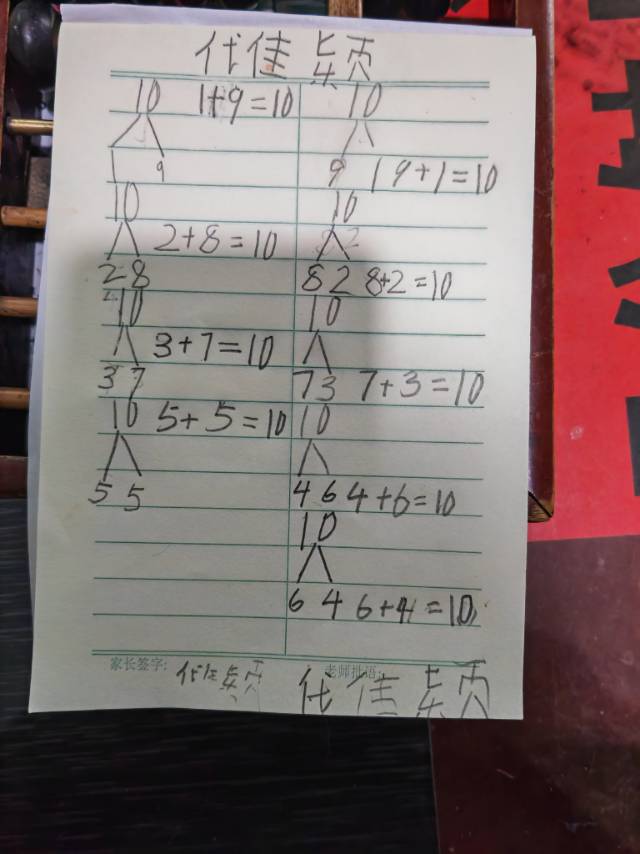 代佳颖
10 1+9=10
1 9
10
2+8=10
2 8
10
3+7=10
3 7
10 5+5=10
5 5
10
9 1 9+1=10
10
8 2 8+2=10
10
7 3 7+3=10
10
4 6 4+6=10
10
6 4 6+4=10
家长签字: 代佳颖
老师批语:
代佳颖